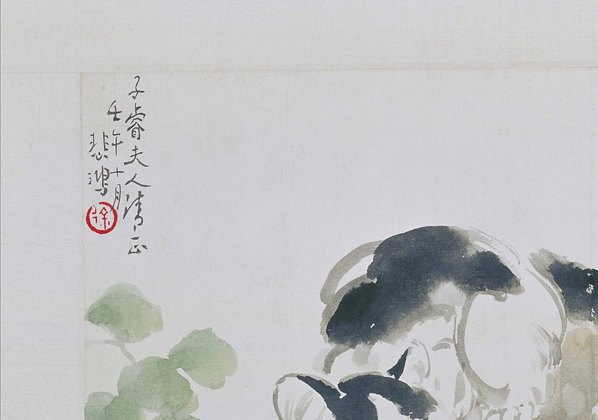 子睿夫人清正
壬午十月
悲鴻
徐